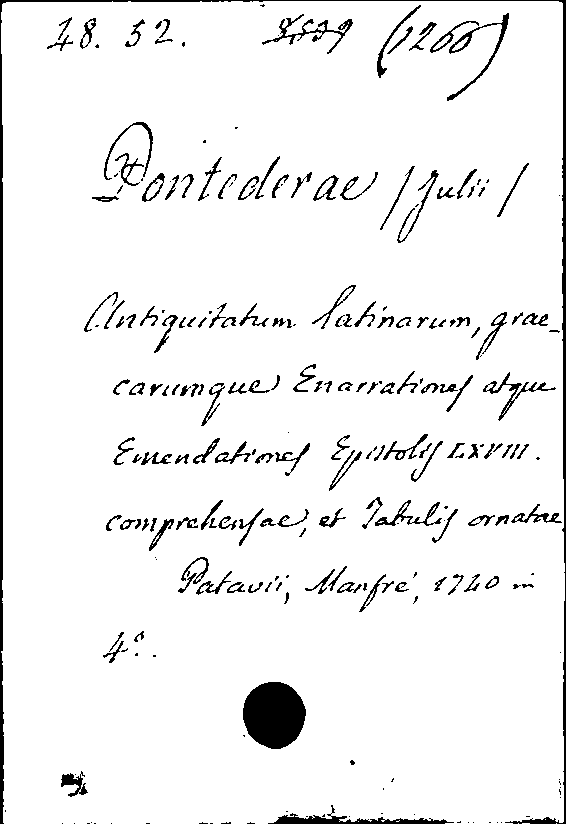 48. 52. (1266)
Pontederae /Julii/
Antiquitatum latinarum, grae-
carumque Enarrationes atque
Emendationes Epistolis LXVIII.
comprehensae, et Tabulis ornatae.
Patavii, Manfré, 1740 in
4º.